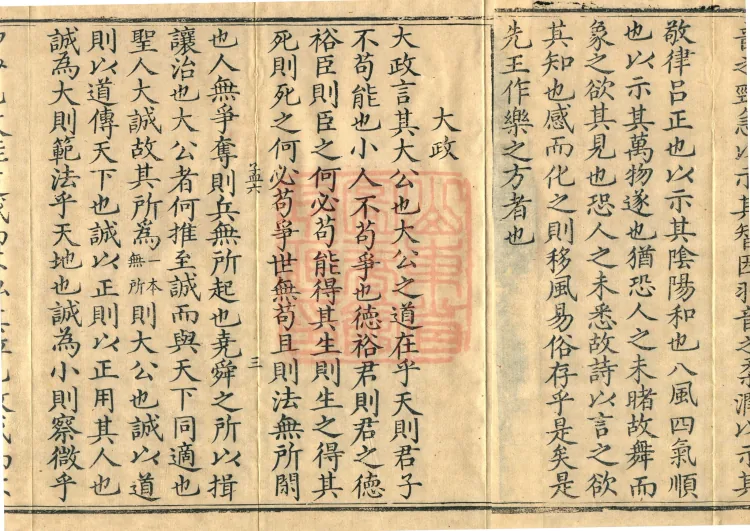 音之勁急以示其智因羽音之柔潤以示其
敬律呂正也以示其陰陽和也八風四氣順
也以示其萬物遂也猶恐人之未睹故舞而
象之欲其見也恐人之未悉故詩以言之欲
其知也感而化之則移風易俗存乎是矣是
先王作樂之方者也
大政
大政言其大公也大公之道在乎天則君子
不苟能也小人不苟爭也德裕君則君之德
裕臣則臣之何必苟能得其生則生之得其
死則死之何必苟爭世無苟且則法無所閉
孟六
三
也人無爭奪則兵無所起也堯舜之所以揖
讓治也大公者何推至誠而與天下同適也
聖人大誠故其所為一本無所則大公也誠以道
則以道傳天下也誠以正則以正用其人也
誠為大則範法乎天地也誠為小則察微乎